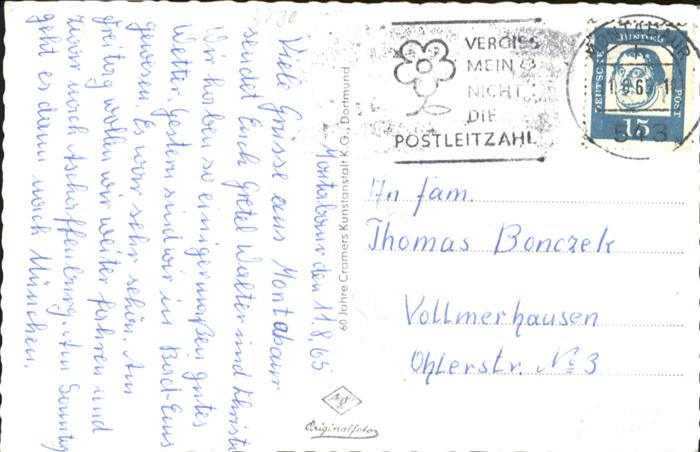 Montabaur den 11.8.65
Viele Grüsse aus Montabaur
sendet Euch Gretel Walter und Christa
Wir haben so einigermaßen gutes
Wetter. Gestern sind wir in Bad-Ems
gewesen. Es war sehr schön. Am
Freitag wollen wir weiter fahren und
zwar nach Aschaffenburg. Am Sonntag
geht es dann nach München.
60 Jahre Cramers Kunstanstalt K.G., Dortmund
Agfa
Originalfoto
VERGISS
MEIN
NICHT
DIE
POSTLEITZAHL
DEUTSCHE
POST
15
543
An Fam.
Thomas Bonczek
Vollmerhausen
Ohlerstr. No 3